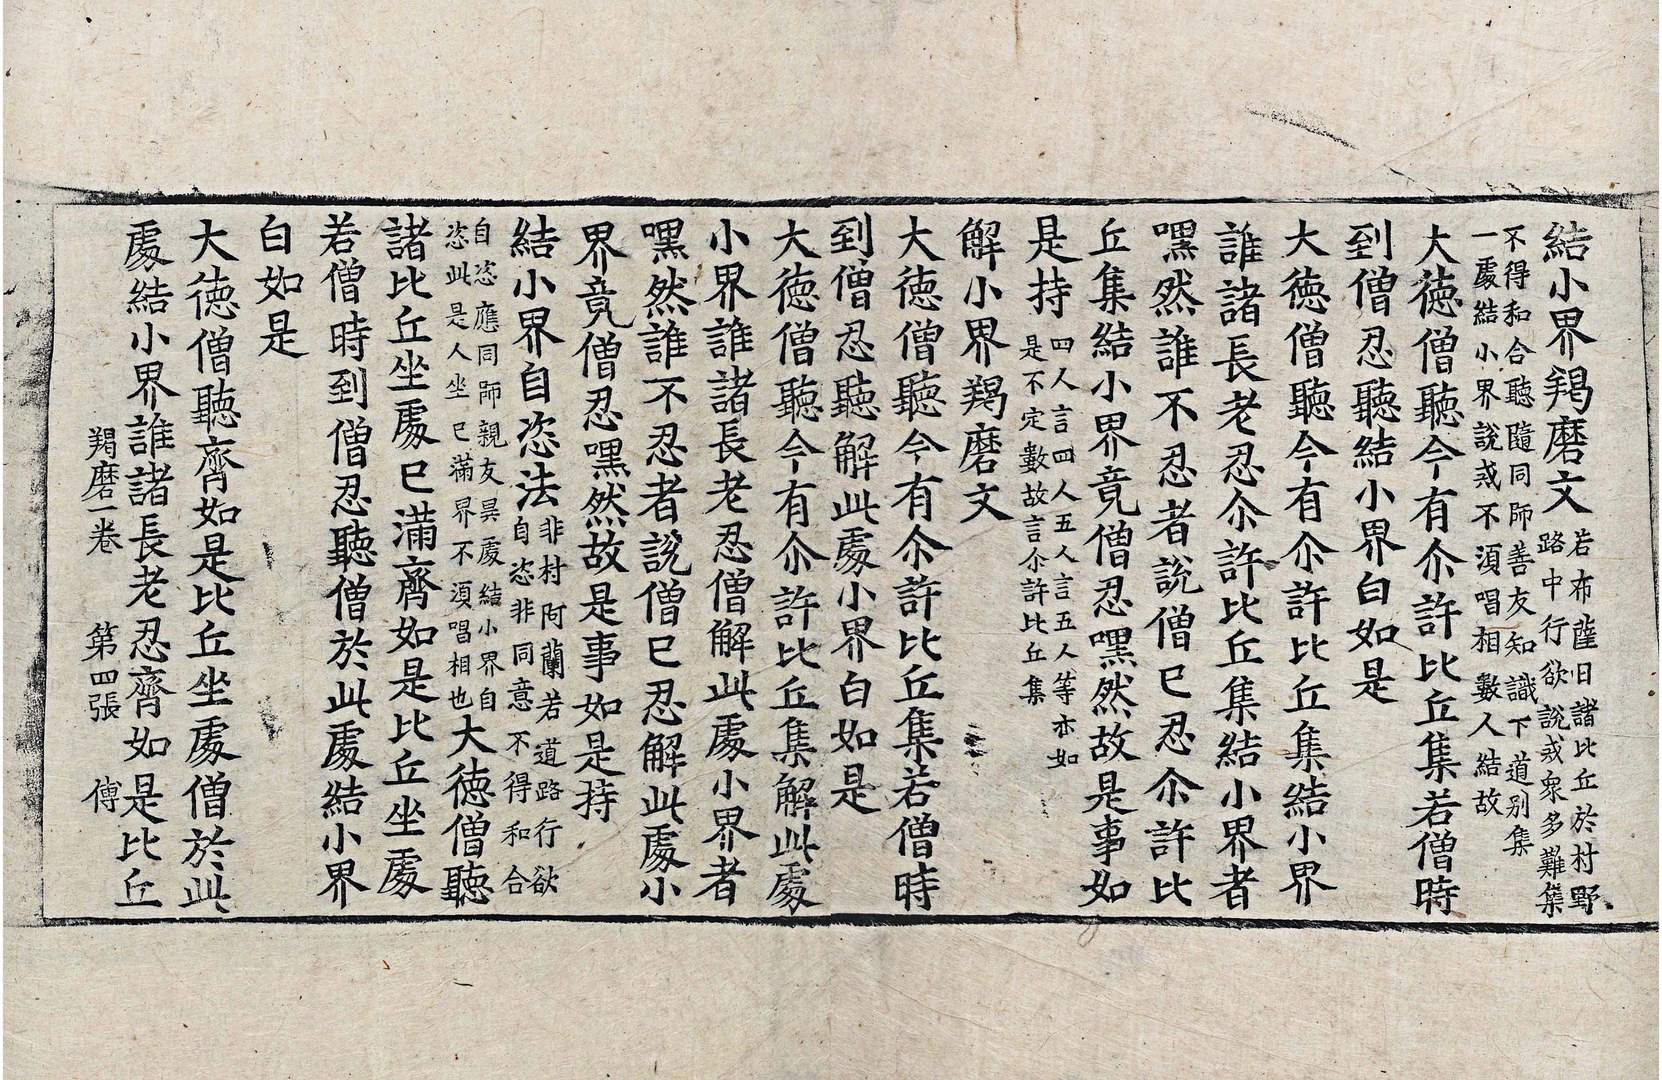 結小界羯磨文若布薩日諸比丘於村野
路中行欲說戒衆多難集
不得和合聽隨同師善友知識下道別集
一處結小界說戒不湏唱相數人結故
大德僧聽今有尒許比丘集若僧時
到僧忍聽結小界白如是
大德僧聽今有尒許比丘集結小界
誰諸長老忍尒許比丘集結小界者
嘿然誰不忍者說僧已忍尒許比
丘集結小界竟僧忍嘿然故是事如
是持四人言四人五人言五人等亦如
是不定數故言尒許比丘集
解小界羯磨文
大德僧聽今有尒許比丘集若僧時
到僧忍聽解此處小界白如是
大德僧聽今有尒許比丘集解此處
小界誰諸長老忍僧解此處小界者
嘿然誰不忍者說僧已忍解此處小
界竟僧忍嘿然故是事如是持
結小界自恣法非村阿蘭若道路行欲
自恣非同意不得和合
自恣應同師親友異處結小界自
恣此是人坐已滿界不湏唱相也大德僧聽
諸比丘坐處已滿齊如是比丘坐處
若僧時到僧忍聽僧於此處結小界
白如是
大德僧聽齊如是比丘坐處僧於此
處結小界誰諸長老忍齊如是比丘
羯磨一卷 第四張 傅